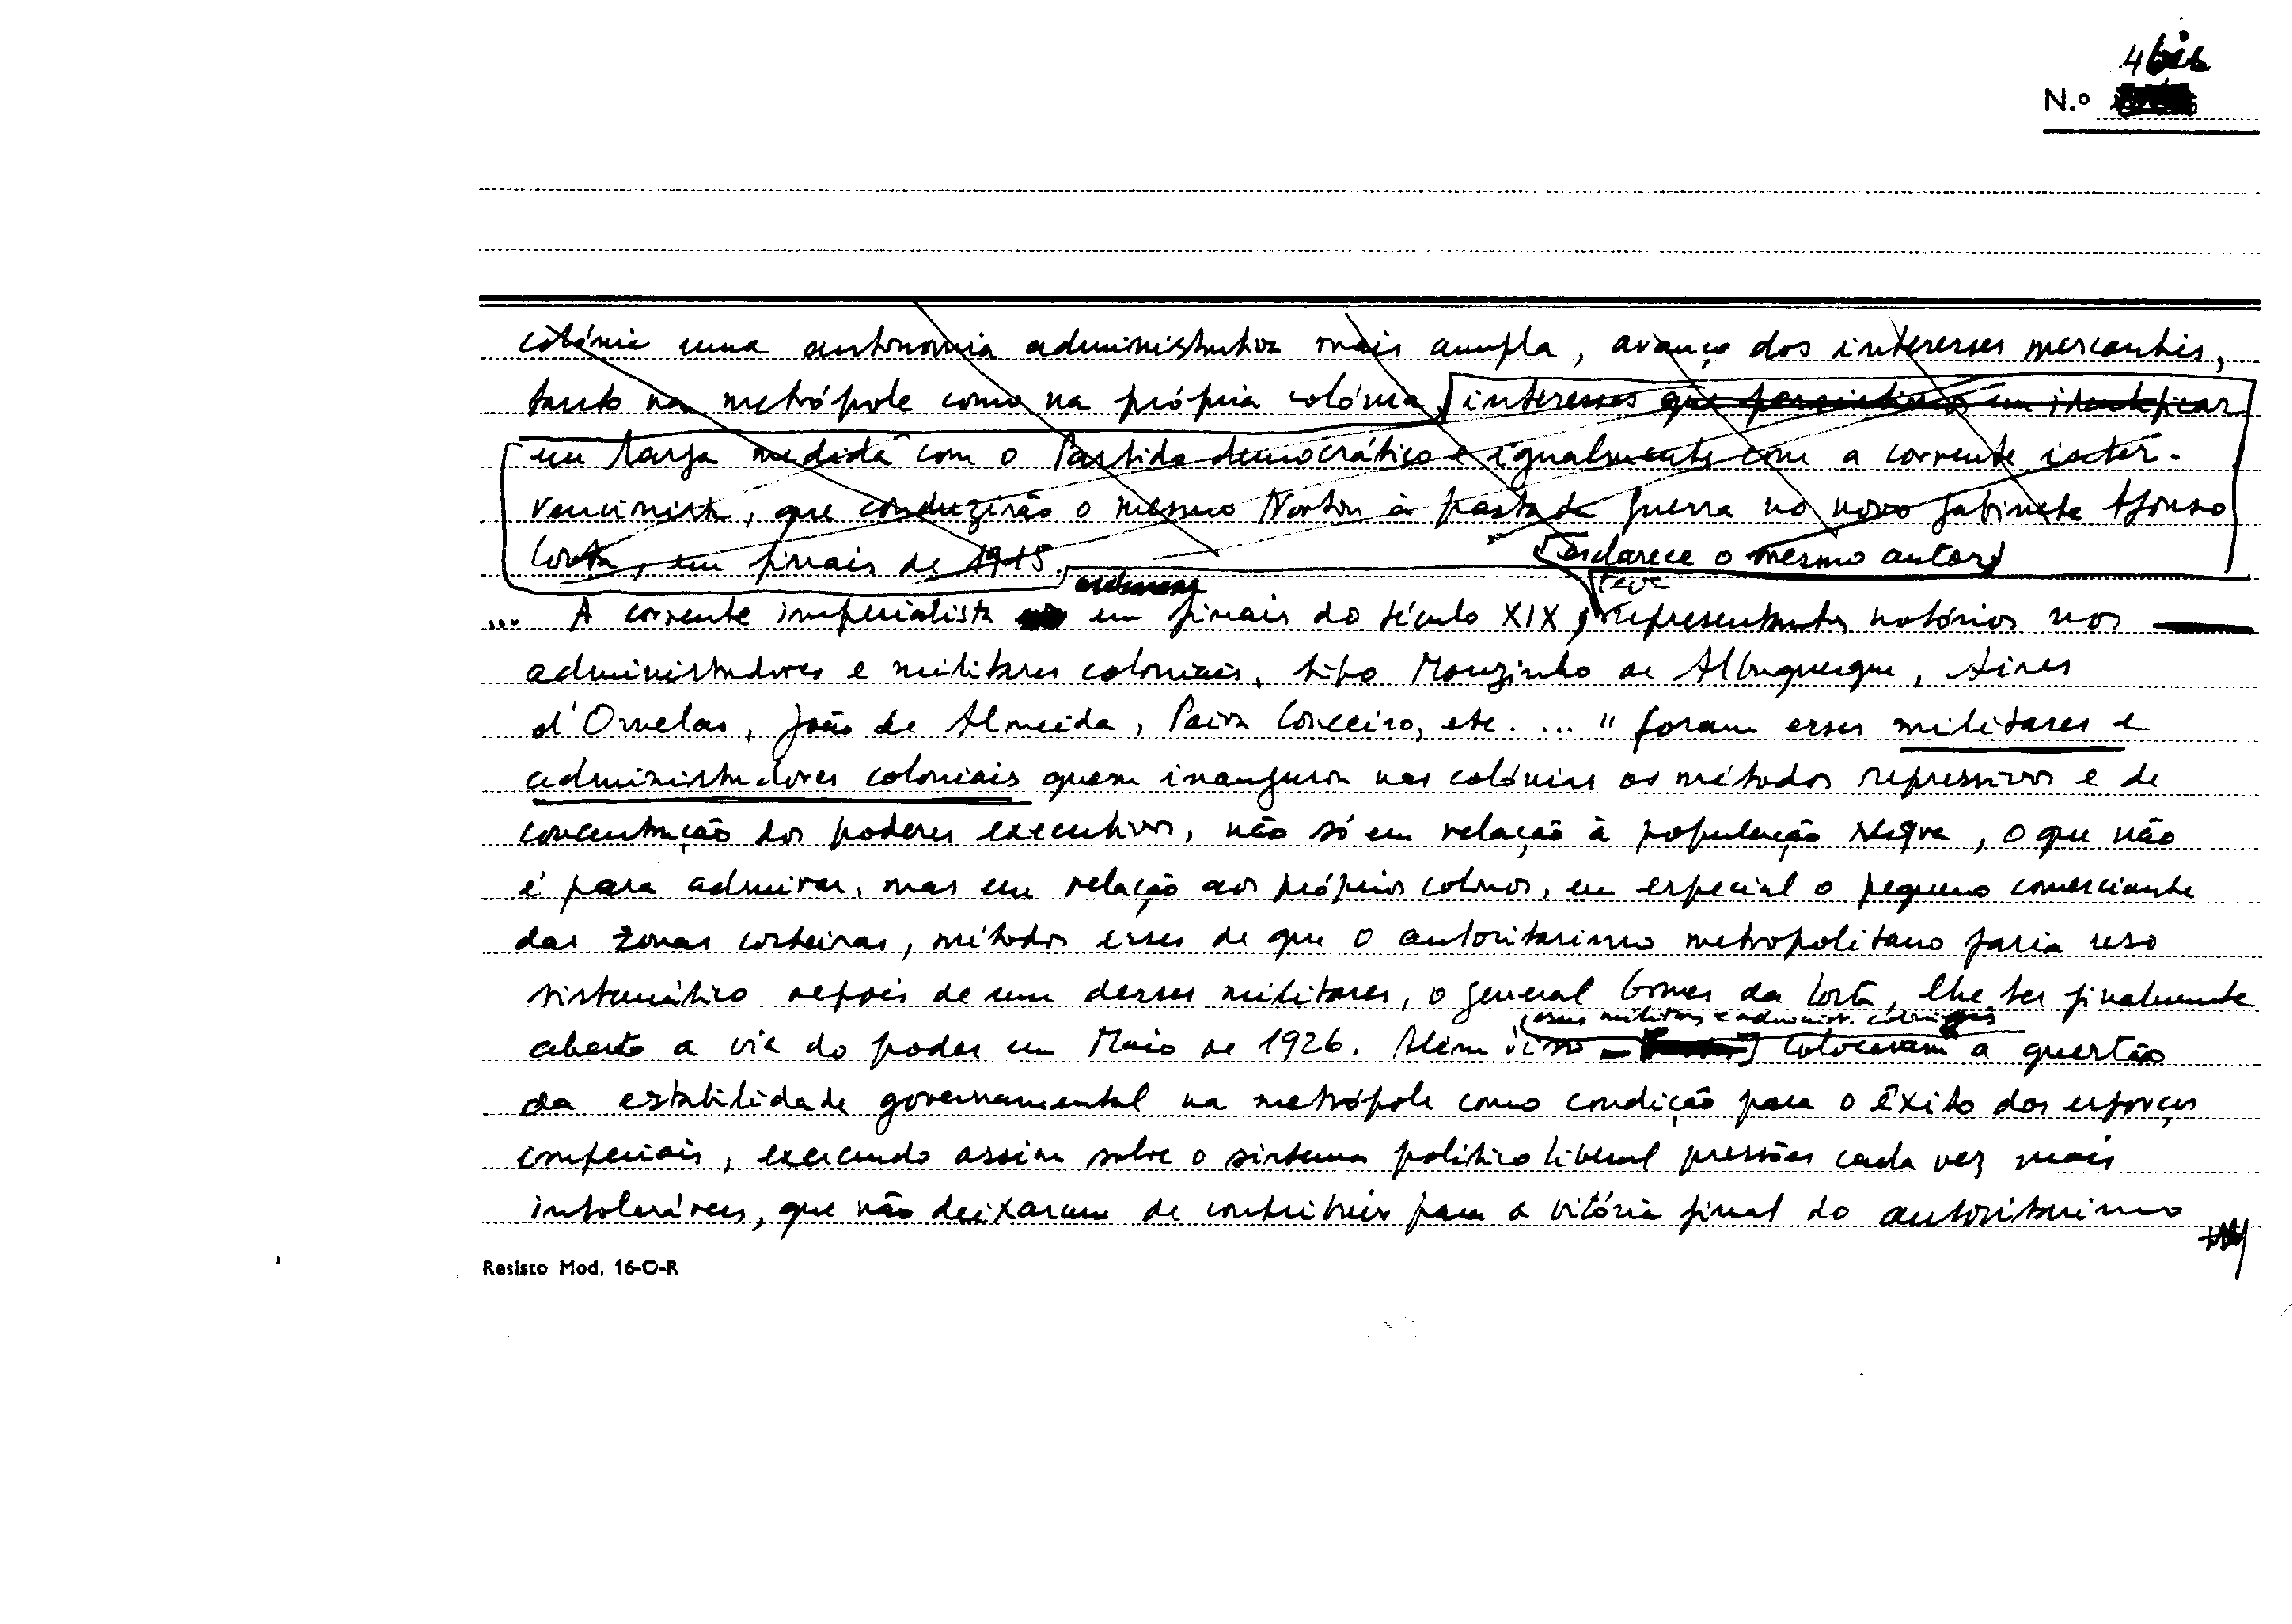 4 bis
N.º
colónia uma autonomia administrativa mais ampla, avanço dos interesses mercantis,
tanto na metrópole como na própria colónia, interesses que persistirão em identificar
em larga medida com o Partido democrático e igualmente com a corrente inter-
vencionista, que conduzirão o mesmo Norton à pasta da guerra no novo gabinete Afonso
Costa, em finais de 1915.
(esclarece o mesmo autor)
teve
... A corrente imperialista em finais do século XIX, representantes notórios nos
administradores e militares coloniais, tipo Mouzinho de Albuquerque, Aires
d'Ornelas, João de Almeida, Paiva Couceiro, etc. ... " foram esses militares e
administradores coloniais quem inaugurou nas colónias os métodos repressivos e de
concentração dos poderes executivos, não só em relação à população Negra, o que não
é para admirar, mas em relação aos próprios colonos, em especial o pequeno comerciante
das zonas costeiras, métodos esses de que o autoritarismo metropolitano faria uso
sistemático depois de um desses militares, o general Gomes da Costa, lhe ter finalmente
esses militares e administ. coloniais
aberto a via do poder em Maio de 1926. Além disso colocavam a questão
da estabilidade governamental na metrópole como condição para o êxito dos esforços
imperiais, exercendo assim sobre o sistema político liberal pressões cada vez mais
intoleráveis, que não deixaram de contribuir para a vitória final do autoritarismo
Resisto Mod. 16-O-R